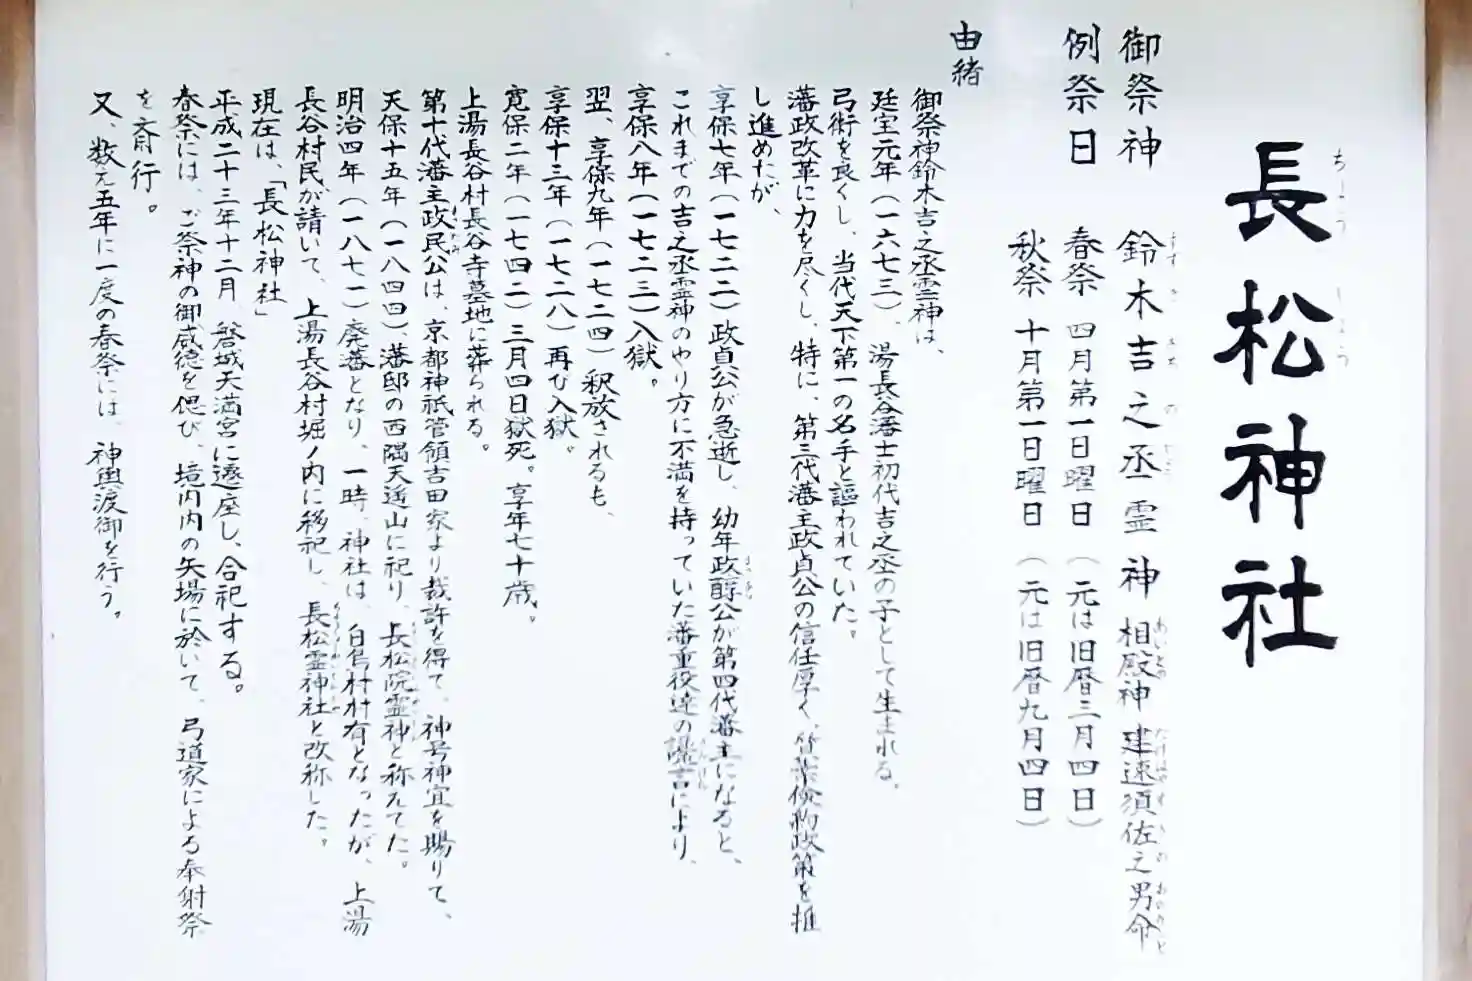 長松神社
御祭神 鈴木吉之丞霊神 相殿神 建速須佐之男命
例祭日 春祭 四月第一日曜日（元は旧暦三月四日）
秋祭 十月第一日曜日（元は旧暦九月四日）
由緒
御祭神鈴木吉之丞霊神は、
延宝元年（一六七三）、湯長谷藩士初代吉之丞の子として生まれる。
弓術を良くし、当代天下第一の名手と謳われていた。
藩政改革に力を尽くし、特に、第三代藩主政貞公の信任厚く、質素倹約政策を推
し進めたが、
享保七年（一七二二）政貞公が急逝し、幼年政醇公が第四代藩主になると、
これまでの吉之丞霊神のやり方に不満を持っていた藩重役達の讒言により、
享保八年（一七二三）入獄。
翌、享保九年（一七二四）釈放されるも、
享保十三年（一七二八）再び入獄。
寛保二年（一七四二）三月四日獄死。享年七十歳。
上湯長谷村長谷寺墓地に葬られる。
第十代藩主政民公は、京都神祇管領吉田家より裁許を得て、神号神宣を賜りて、
天保十五年（一八四四）、藩邸の西隅天遥山に祀り、長松院霊神と称えてた。
明治四年（一八七一）廃藩となり、一時、神社は、白鳥村村有となったが、上湯
長谷村民が請いて、上湯長谷村堀ノ内に移祀し、長松霊神社と改称した。
現在は、「長松神社」
平成二十三年十二月、磐城天満宮に遷座し、合祀する。
春祭には、ご祭神の御威徳を偲び、境内内の矢場に於いて、弓道家による奉射祭
を斎行。
又、数え五年に一度の春祭には、神輿渡御を行う。